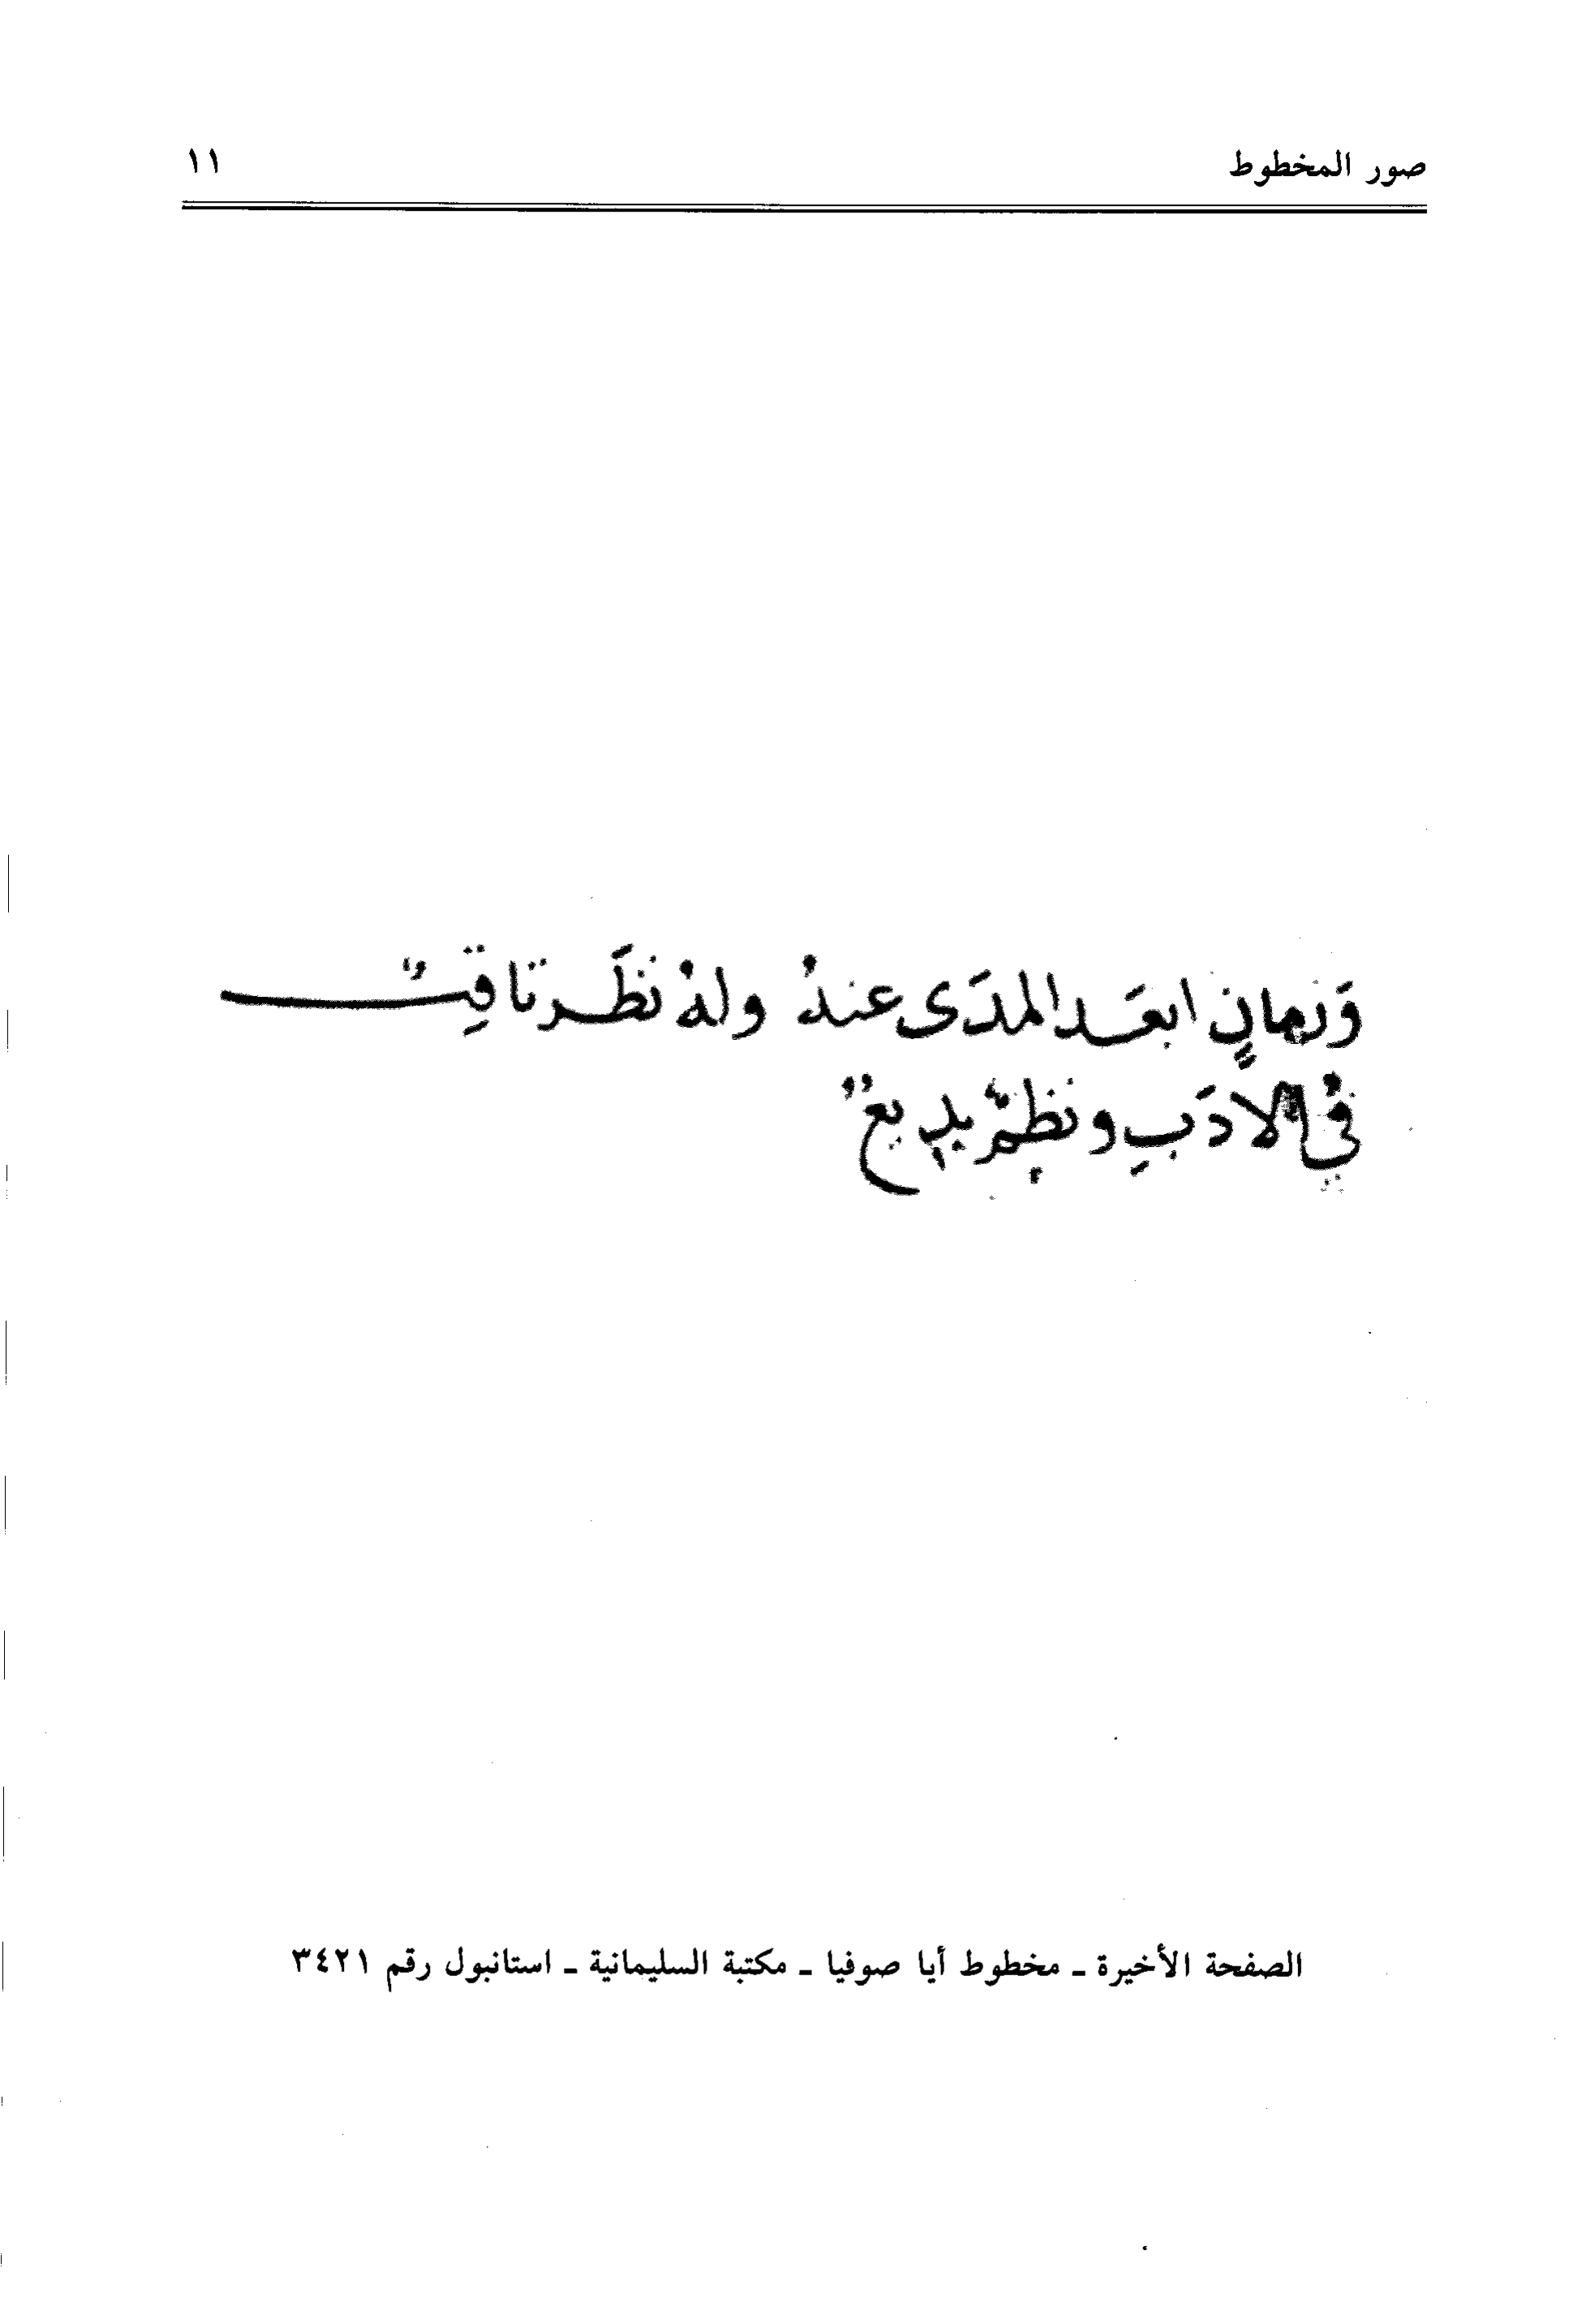 صور المخطوط ١١
وَزمانٍ ابعَد المدَى عنهُ ولهُ نظَر ثاقِبٌ
في الادَبِ ونظمٌ بديعٌ
الصفحة الأخيرة ـ مخطوط أيا صوفيا ـ مكتبة السليمانية ـ استانبول رقم ٣٤٢١